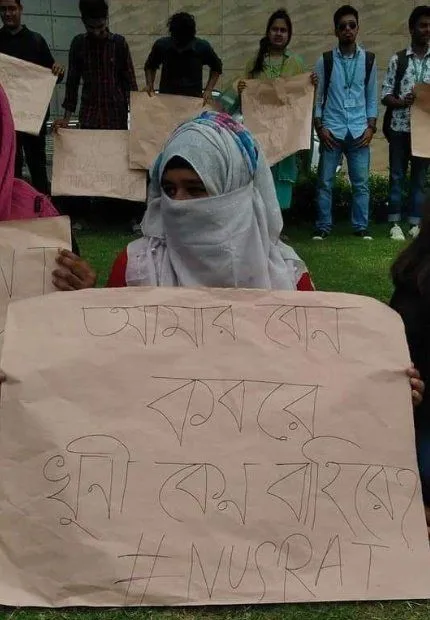 আমার বোন
কবরে
খুনী কেন বাহিরে?
#NUSRAT
NT